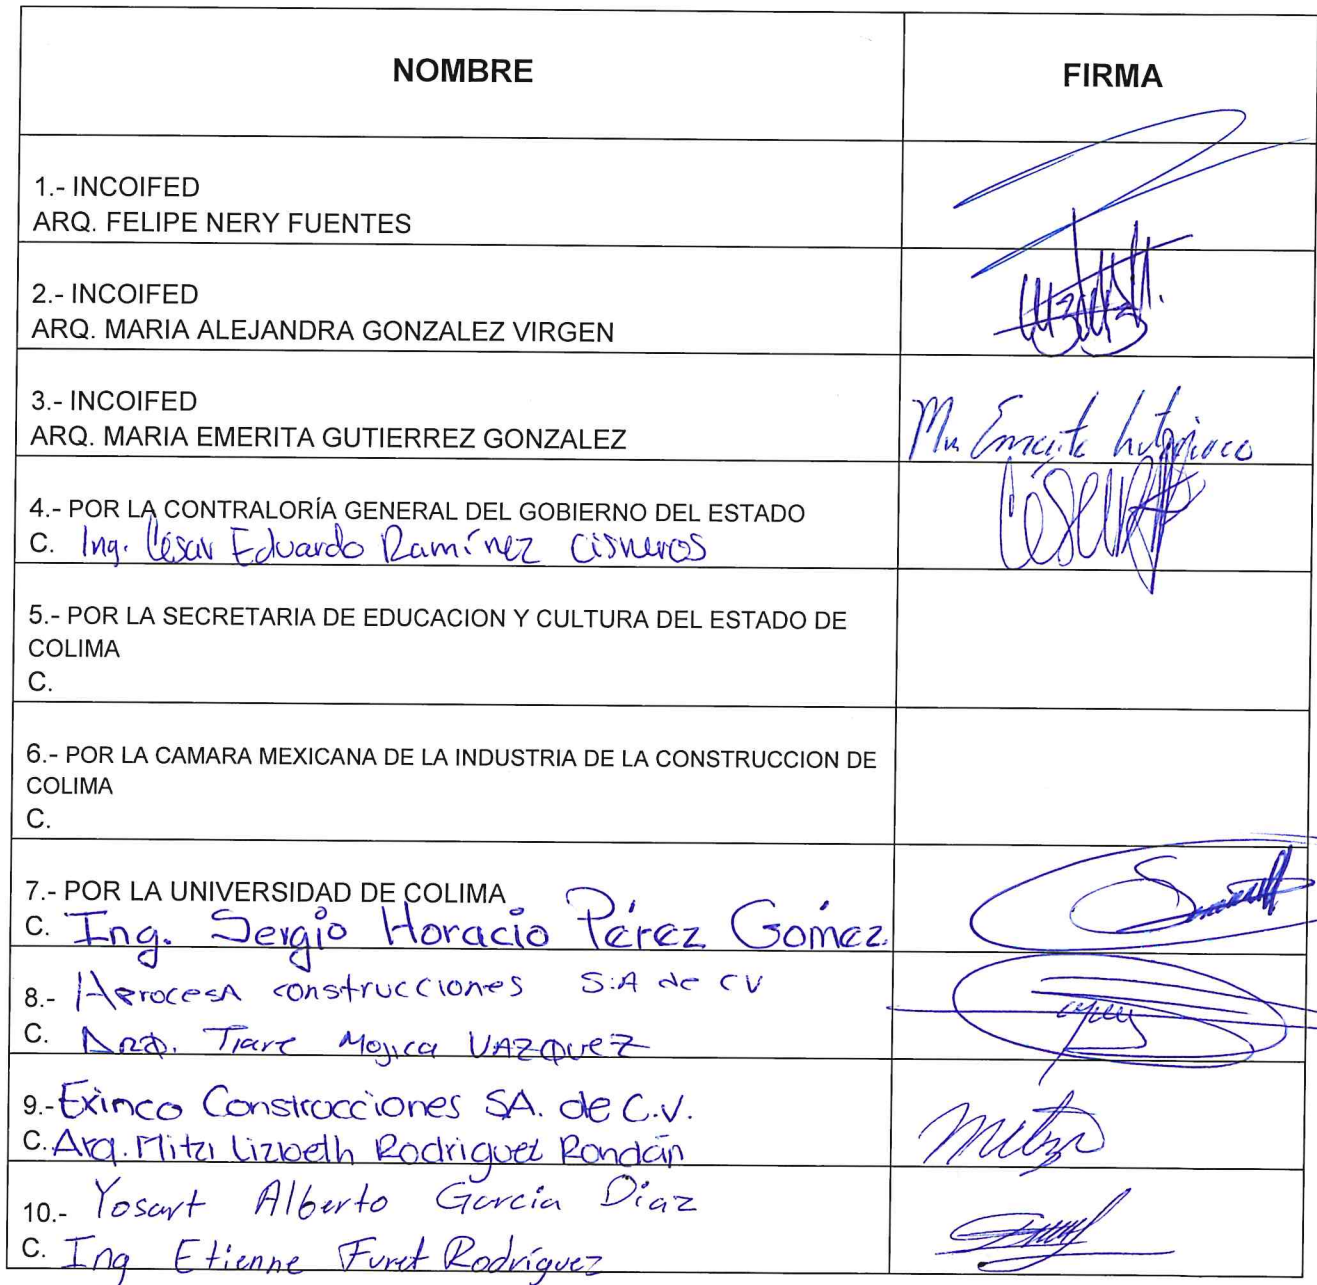 NOMBRE
FIRMA
1.- INCOIFED
ARQ. FELIPE NERY FUENTES
2.- INCOIFED
ARQ. MARIA ALEJANDRA GONZALEZ VIRGEN
3.- INCOIFED
ARQ. MARIA EMERITA GUTIERREZ GONZALEZ
Ma Emerita
4.- POR LA CONTRALORÍA GENERAL DEL GOBIERNO DEL ESTADO
C. Ing. César Eduardo Ramírez Cisneros
5.- POR LA SECRETARIA DE EDUCACION Y CULTURA DEL ESTADO DE
COLIMA
C.
6.- POR LA CAMARA MEXICANA DE LA INDUSTRIA DE LA CONSTRUCCION DE
COLIMA
C.
7.- POR LA UNIVERSIDAD DE COLIMA
C. Ing. Sergio Horacio Pérez Gómez.
8.- construcciones S.A de CV
C. ARQ. Tiare Mojica VAZQUEZ
9.- Exinco Construcciones SA. de C.V.
C. Arq. Mitzi Lizbeth Rodriguez Rondán
10.- Yosart Alberto García Díaz
C. Ing Etienne Furet Rodríguez